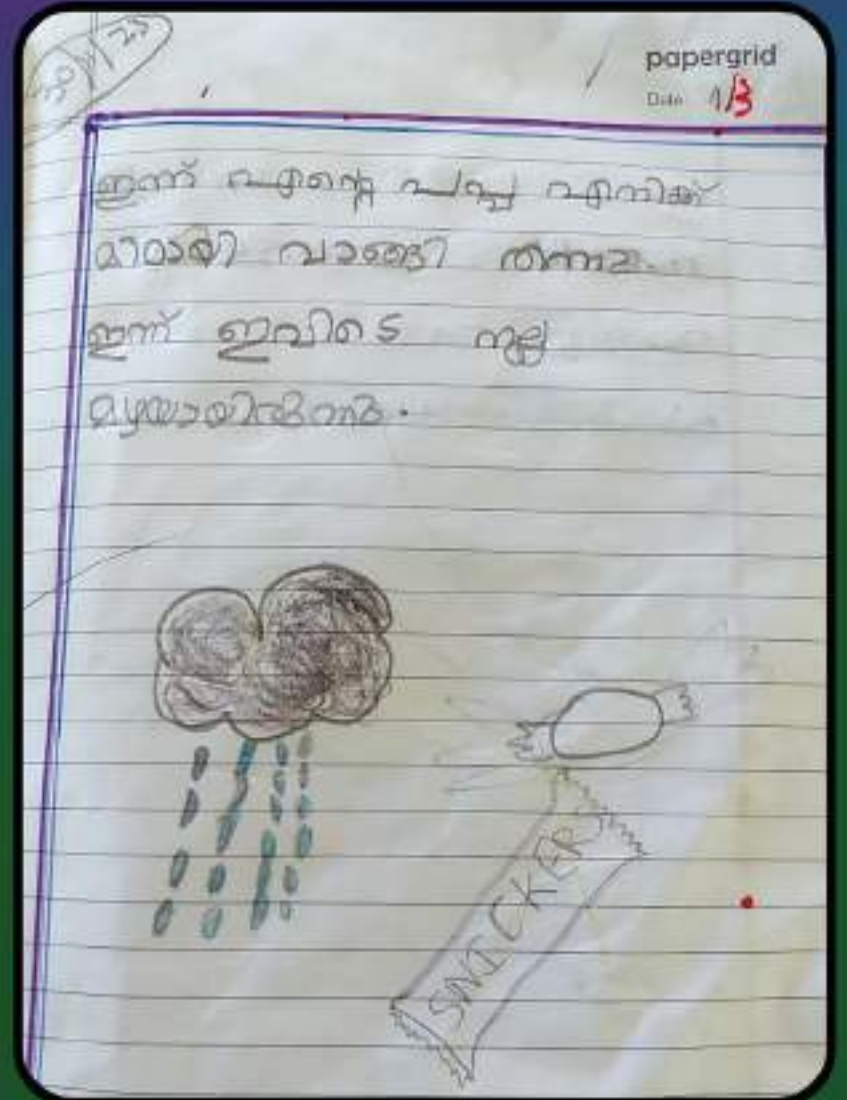 papergrid
Date 1/3
ഇന്ന് എന്റെ പപ്പ എനിക്ക്
മിഠായി വാങ്ങി തന്നു.
ഇന്ന് ഇവിടെ നല്ല
മഴയായിരുന്നു.
SNICKER